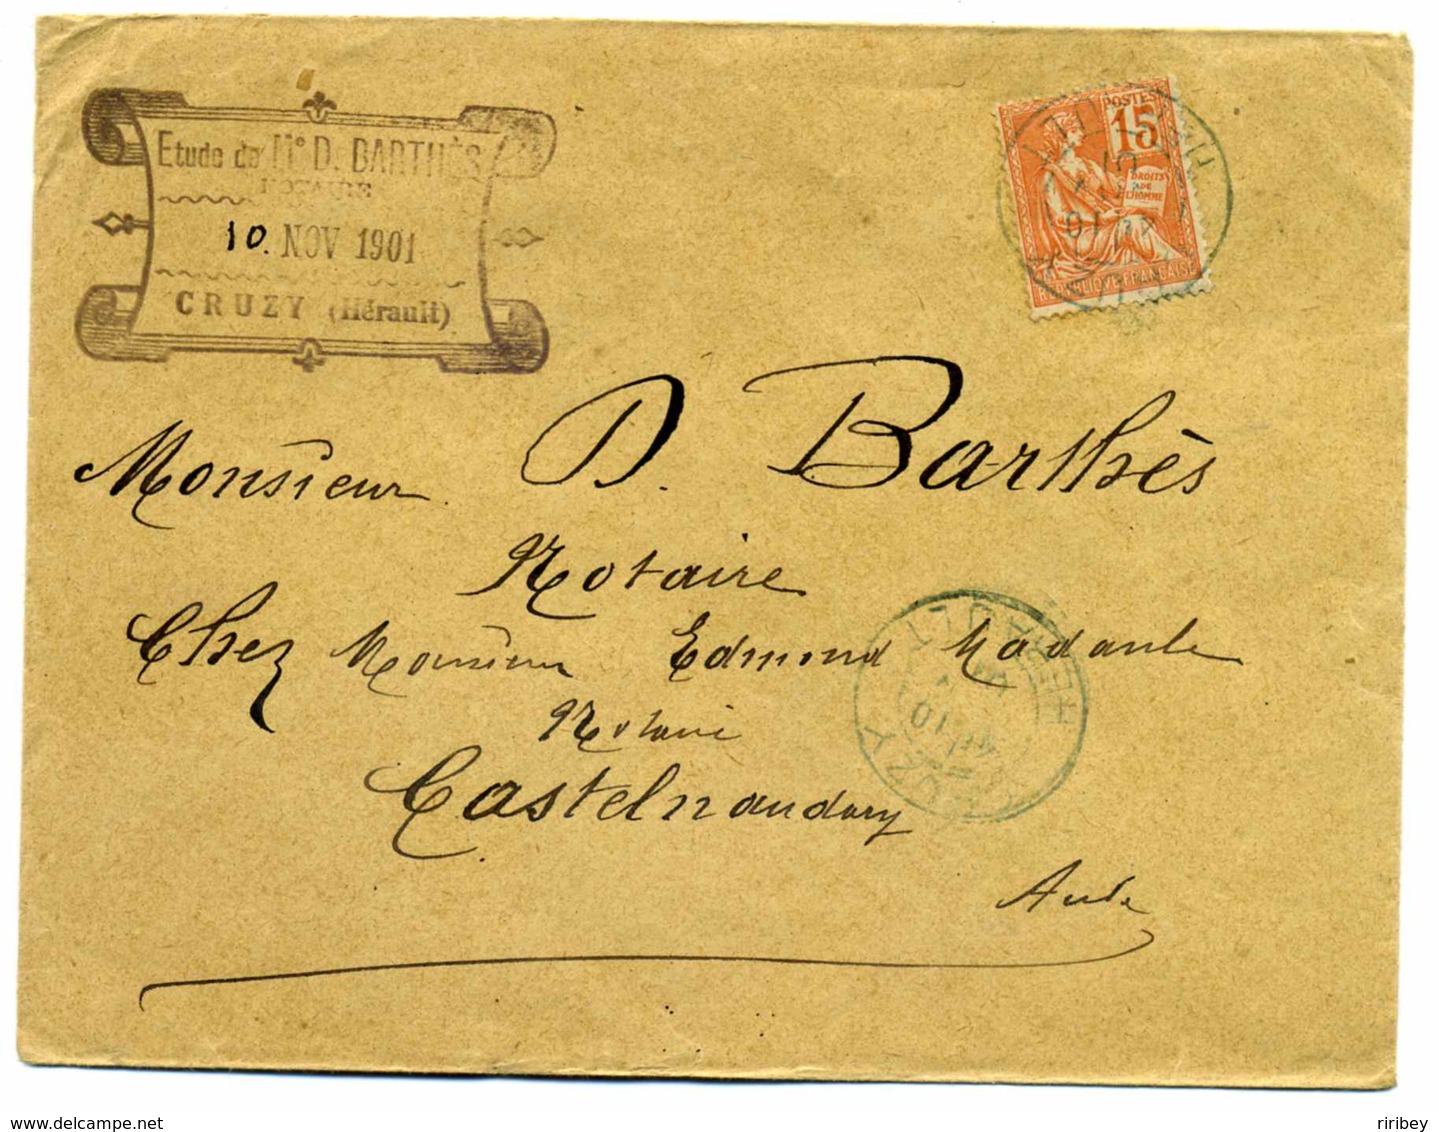 Etude de Me D. BARTHÈS
NOTAIRE
10. NOV 1901
CRUZY (Hérault)
POSTES
15
DROITS
DE
L'HOMME
REPUBLIQUE FRANÇAISE
Monsieur D. Barthès
Notaire
Chez Monsieur Edmond
Notaire
Castelnaudary
Aude
CRUZY
HERAULT
10
01
www.delcampe.net
riribey